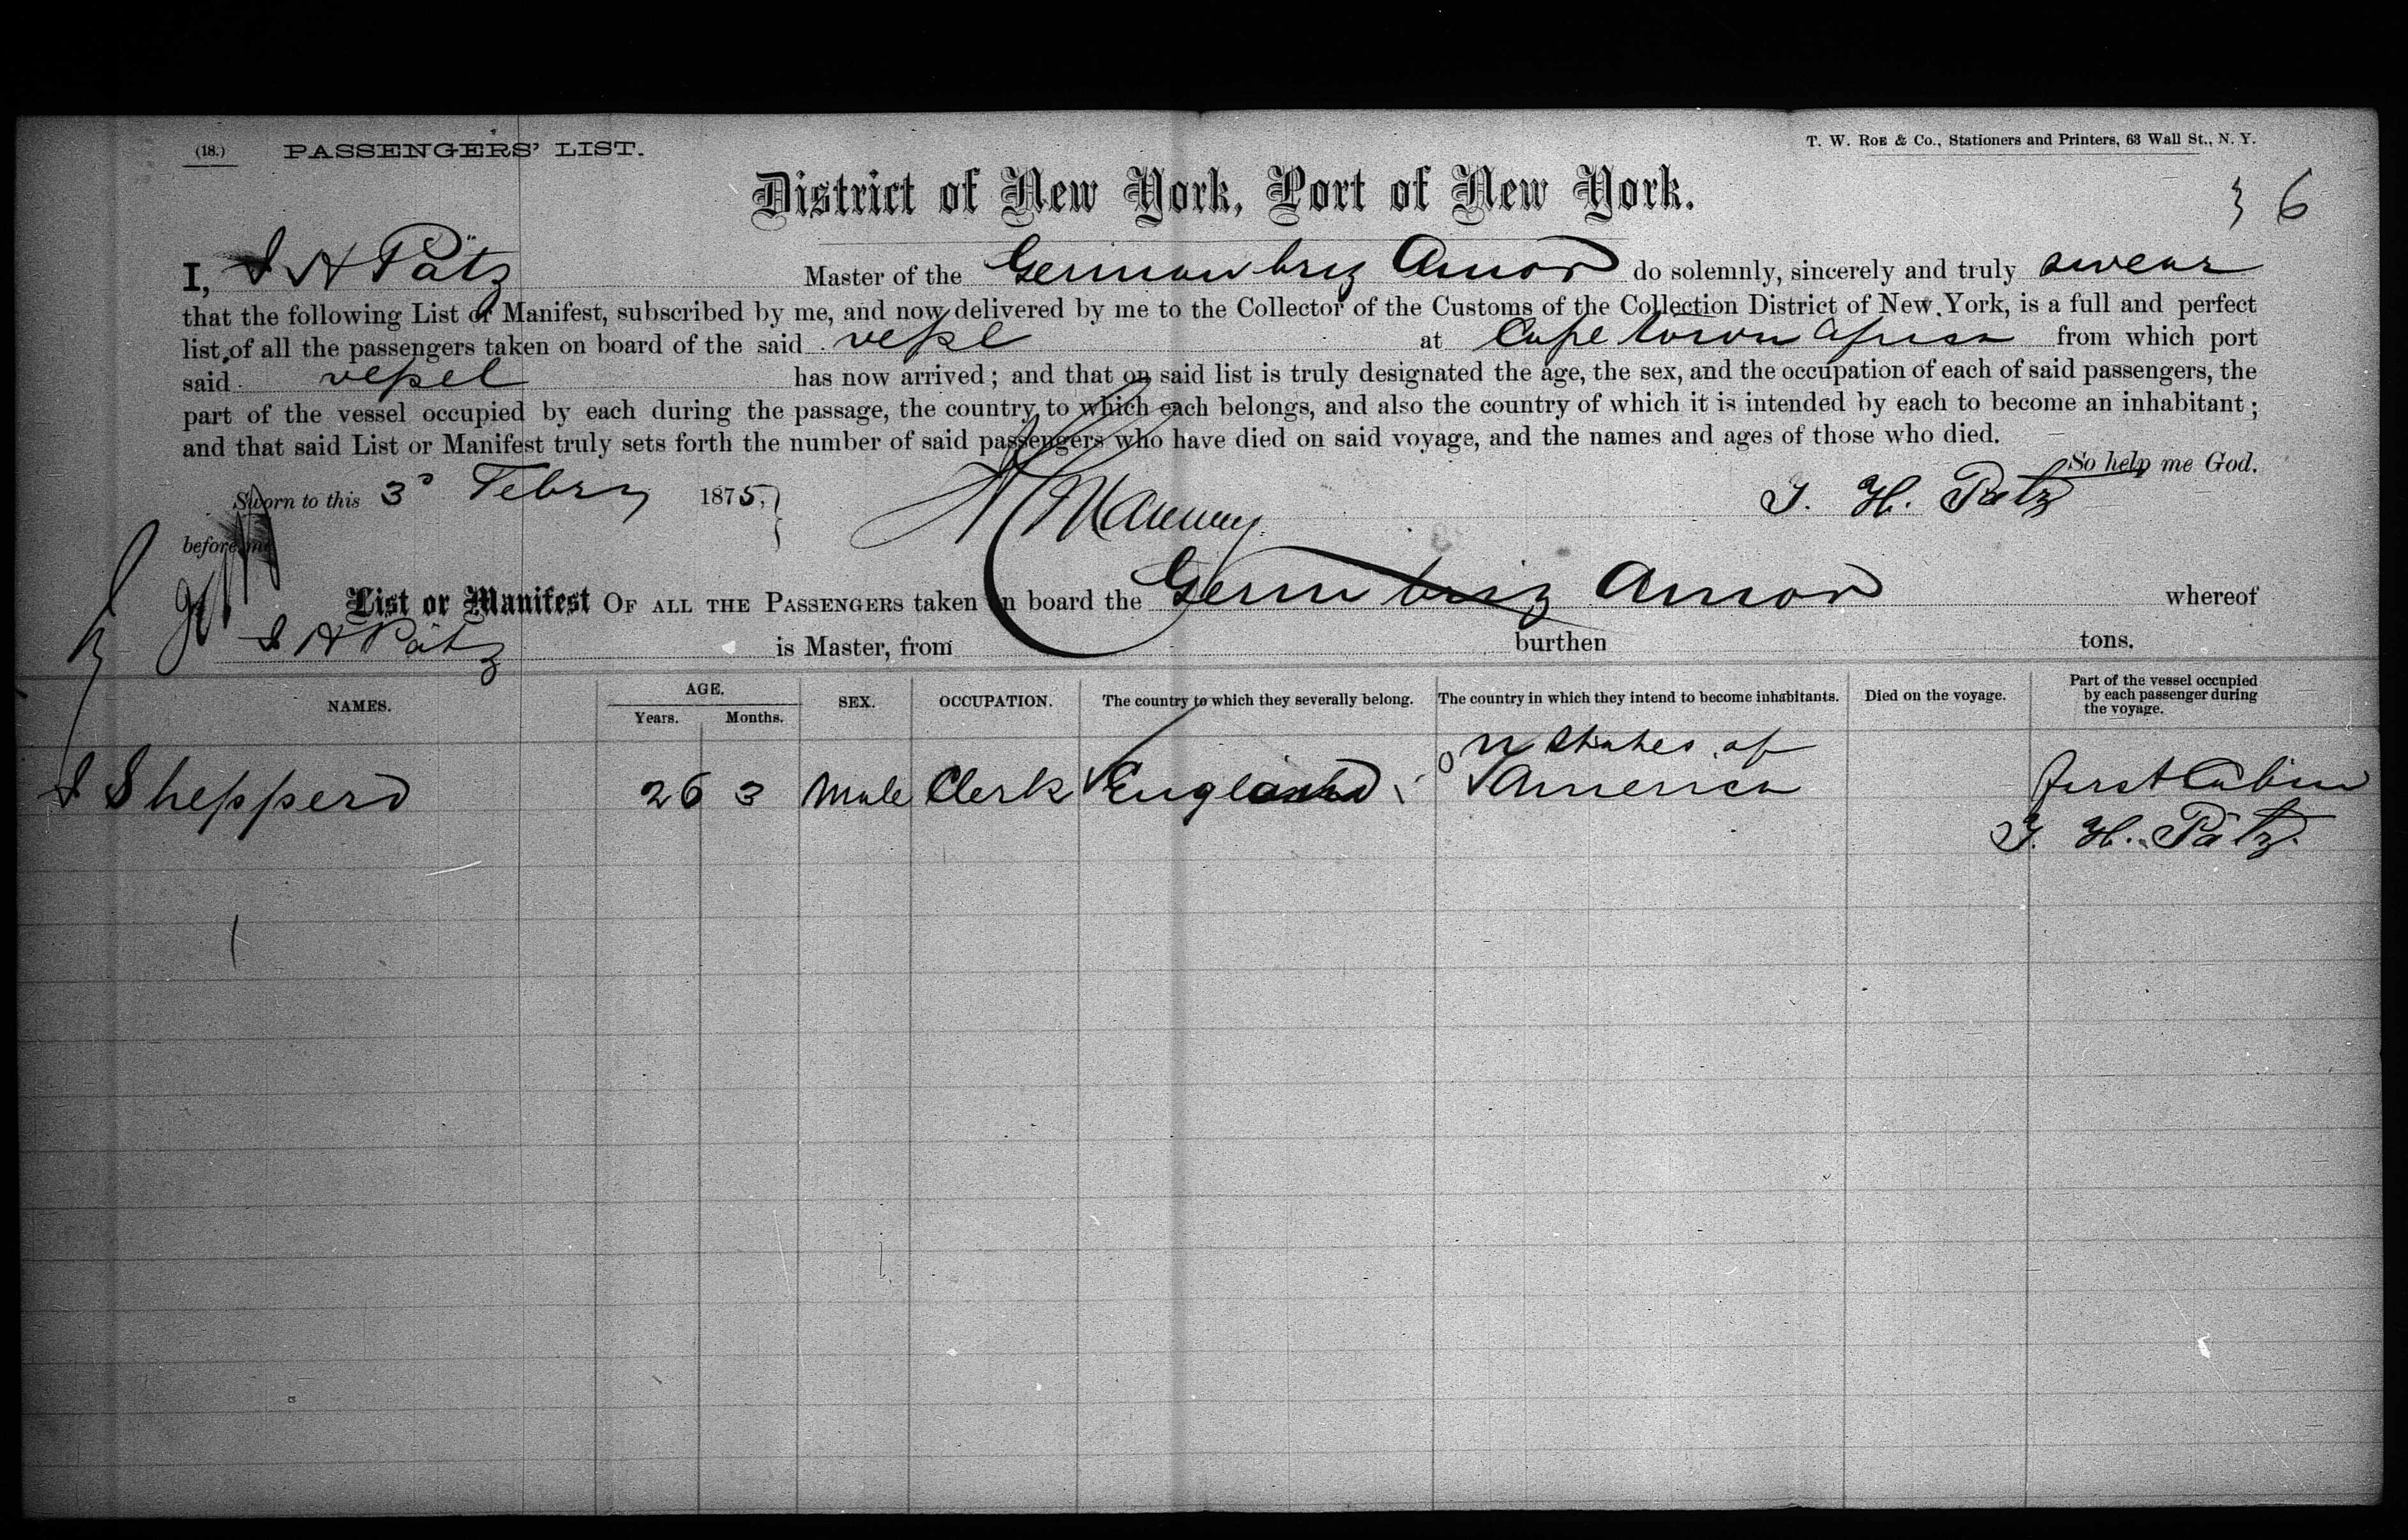 (18.) PASSENGERS' LIST.
T. W. ROE & Co., Stationers and Printers, 63 Wall St., N. Y.
District of New York, Port of New York.
6
I, J H Pätz Master of the German brig Amor do solemnly, sincerely and truly swear
that the following List or Manifest, subscribed by me, and now delivered by me to the Collector of the Customs of the Collection District of New York, is a full and perfect
list, of all the passengers taken on board of the said vessl at Cape town Africa from which port
said vessel has now arrived; and that on said list is truly designated the age, the sex, and the occupation of each of said passengers, the
part of the vessel occupied by each during the passage, the country to which each belongs, and also the country of which it is intended by each to become an inhabitant;
and that said List or Manifest truly sets forth the number of said passengers who have died on said voyage, and the names and ages of those who died.
So help me God.
Sworn to this 3d Febry 1875,
J. H. Pätz
before me
List or Manifest OF ALL THE PASSENGERS taken on board the Germ brig Amor whereof
J H Pätz is Master, from burthen tons.
NAMES. AGE. Years. Months. SEX. OCCUPATION. The country to which they severally belong. The country in which they intend to become inhabitants. Died on the voyage. Part of the vessel occupied by each passenger during the voyage.
States of
J Shepperd 26 3 Male Clerk England America first Cabin
J. H. Pätz.